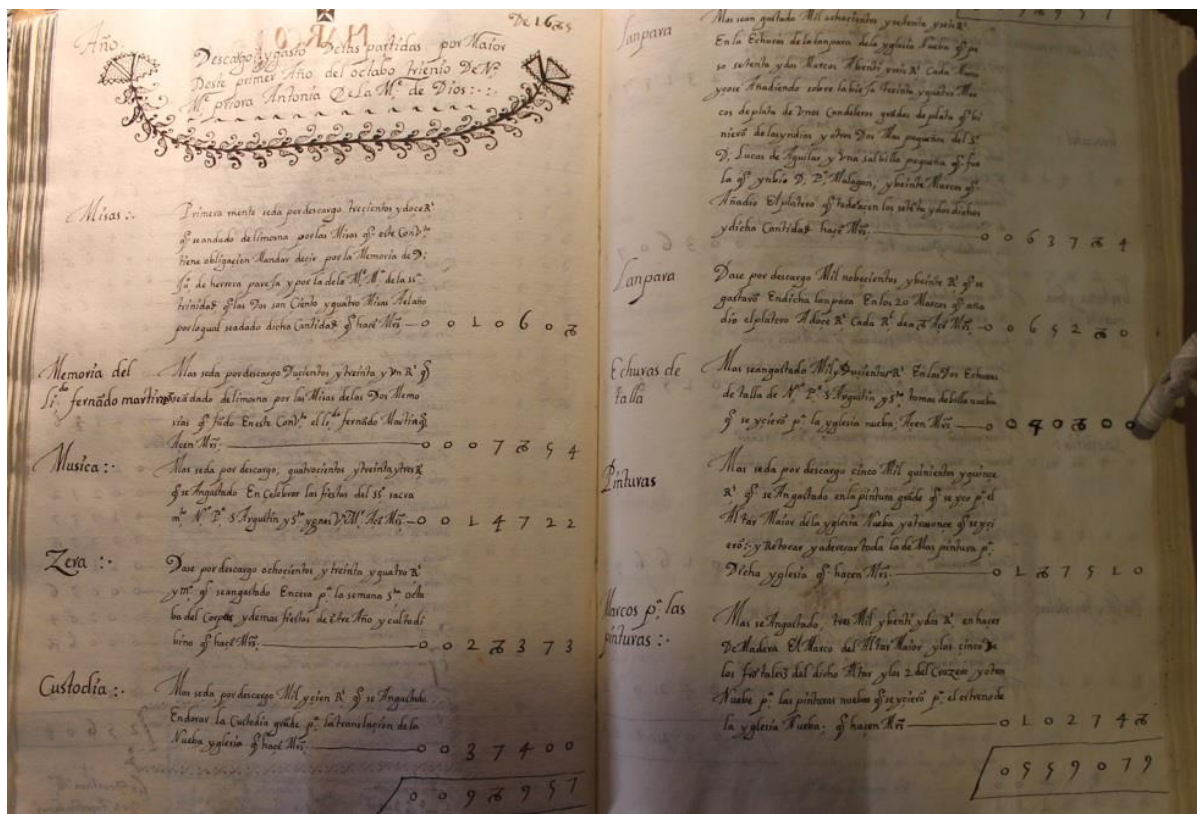 Año.
De 1685
Descargo, y gasto De las partidas por Maior
Deste primer Año del octabo trienio De Nª
Mª priora Antonia De La Mª de Dios:·:·
Misas:·
Primera mente se da por descargo trecientos y doce Rˢ
q̃ se an dado de limosna por las Misas q̃ este Convto
tiene obligacion Mandar decir por la Memoria de D;
Juº de herrera pareja y por la de la Mᵉ Mª de la ssª
trinidad q̃ las Dos son Ciento y quatro Misas Al año
por lo qual se a dado dicha Cantidad q̃ hacẽ Mrs̃ — 0 0 1 0 6 0 8
Memoria del
Lido fernãdo martinez
Mas se da por descargo Ducientos y treinta y Vn Rˢ q̃
se an dado de limosna por las Misas de las Dos Memo
rias q̃ fũdo En este Convto el ldo fernãdo Martinez q̃
Acen Mrs̃: — 0 0 0 7 8 5 4
Musica:·
Mas se da por descargo; quatrocientos y treinta y tres Rˢ
q̃ se An gastado En Celebrar las fiestas del ssº sacra
mto Nº Pº S Agustin y Sta ynes VM; Acẽ Mrs̃ — 0 0 1 4 7 2 2
Zera:·
Dase por descargo ochocientos y treinta y quatro Rˢ
y mº q̃ se an gastado En cera pª la semana Sta octa
ba del Corpus y demas fiestas de Este Año y culto di
bino q̃ hacẽ Mrs̃: — 0 0 2 8 3 7 3
Custodia:·
Mas se da por descargo Mil y cien Rˢ q̃ se An gastado
En dorar la Custodia grãde pª la translacion de la
Nueba yglesia q̃ hacẽ Mrs̃: — 0 0 3 7 4 0 0
0 0 9 8 9 5 7
Lanpara
Mas se an gastado Mil ochocientos y setenta y seis Rˢ
En la Echura de la lanpara de la yglesia Nueba q̃ pe
so setenta y dos Marcos A beinti y seis Rˢ Cada Marco
Añadiendo sobre la bieja treinta y quatro Mar
cos de plata de Vnos Candeleros grãdes de plata q̃ bi
nierõ de las yndias y otros Dos Mas pequeños del Sʳ
D; Lucas de Aguilar y Vna salbilla pequeña q̃ fue
la q̃ ynbio D. P; Malagon; y beinte Marcos q̃
Añadio El platero q̃ todo acen los setẽta y dos dichos
y dicha Cantidad hacẽ Mrs̃. — 0 0 6 3 7 8 4
Lanpara
Dase por descargo Mil nobecientos y beinte Rˢ q̃ se
gastarõ En dicha lanpara En los 20 Marcos q̃ aña
dio el platero A doce Rˢ Cada Rˡ de a 8 Acẽ Mrs̃. — 0 0 6 5 2 8 0
Echuras de
talla
Mas se an gastado Mil y Ducientos Rˢ En las Dos Echuras
de talla de Nº Pº S Agustin y Sto tomas de billa nueba
q̃ se ycierõ pª la yglesia nueba; Acen Mrs̃ — 0 0 4 0 8 0 0
Pinturas
Mas se da por descargo cinco Mil quinientos y quince
Rˢ q̃ se An gastado en la pintura grãde q̃ se yço pª el
Altar Maior de la yglesia Nueba y otras once q̃ se yci
erõ:· y Retocar y aderecar toda la de Mas pintura pª
Dicha yglesia q̃ hacen Mrs̃: — 0 1 8 7 5 1 0
Marcos pª las
pinturas:·
Mas se An gastado, tres Mil y beinti y dos Rˢ en hacer
De Madera El Marco del Altar Maior y los cinco De
los frõtales del dicho Altar y los 2 del Cruzero y otros
Nuebe pª las pinturas nuebas q̃ se ycierõ pª el estreno de
la yglesia Nueba; q̃ hacen Mrs̃ — 0 1 0 2 7 4 8
0 5 5 9 0 7 9